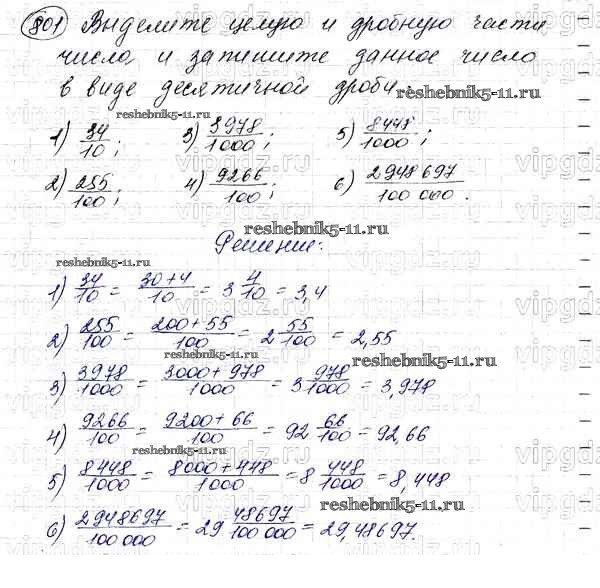 801 Выделите целую и дробную части
числа и запишите данное число
в виде десятичной дроби.
reshebnik5-11.ru
reshebnik5-11.ru
1) 34/10; 3) 3978/1000; 5) 8448/1000;
2) 255/100; 4) 9266/100; 6) 2948697/100 000.
reshebnik5-11.ru
Решение:
reshebnik5-11.ru
1) 34/10 = 30+4/10 = 3 4/10 = 3,4
2) 255/100 = 200+55/100 = 2 55/100 = 2,55
reshebnik5-11.ru
reshebnik5-11.ru
3) 3978/1000 = 3000+978/1000 = 3 978/1000 = 3,978
4) 9266/100 = 9200+66/100 = 92 66/100 = 92,66
reshebnik5-11.ru
5) 8448/1000 = 8000+448/1000 = 8 448/1000 = 8,448
reshebnik5-11.ru
6) 2948697/100 000 = 29 48697/100 000 = 29,48697.
vipgdz.ru